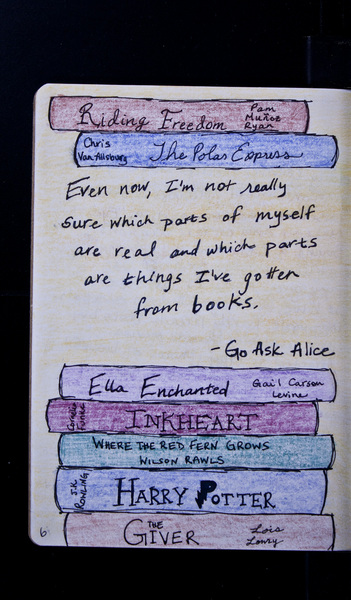 Riding Freedom
Pam
Muñoz
Ryan
Chris
Van Allsburg
The Polar Express
Even now, I'm not really
sure which parts of myself
are real and which parts
are things I've gotten
from books.
- Go Ask Alice
Ella Enchanted
Gail Carson
Levine
Cornelia
Funke
INKHEART
WHERE THE RED FERN GROWS
WILSON RAWLS
J.K.
ROWLING
HARRY POTTER
THE
GIVER
Lois
Lowry
6